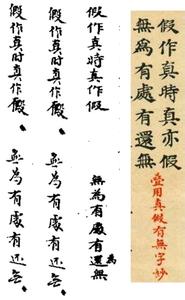 假作真時真亦假
無為有處有還無
疊用真假有無字妙
假作真時真作假
無為有處有還無
為
假作真时真作假、
無為有處有还无、
假作真时真作假、
無為有處有还无、